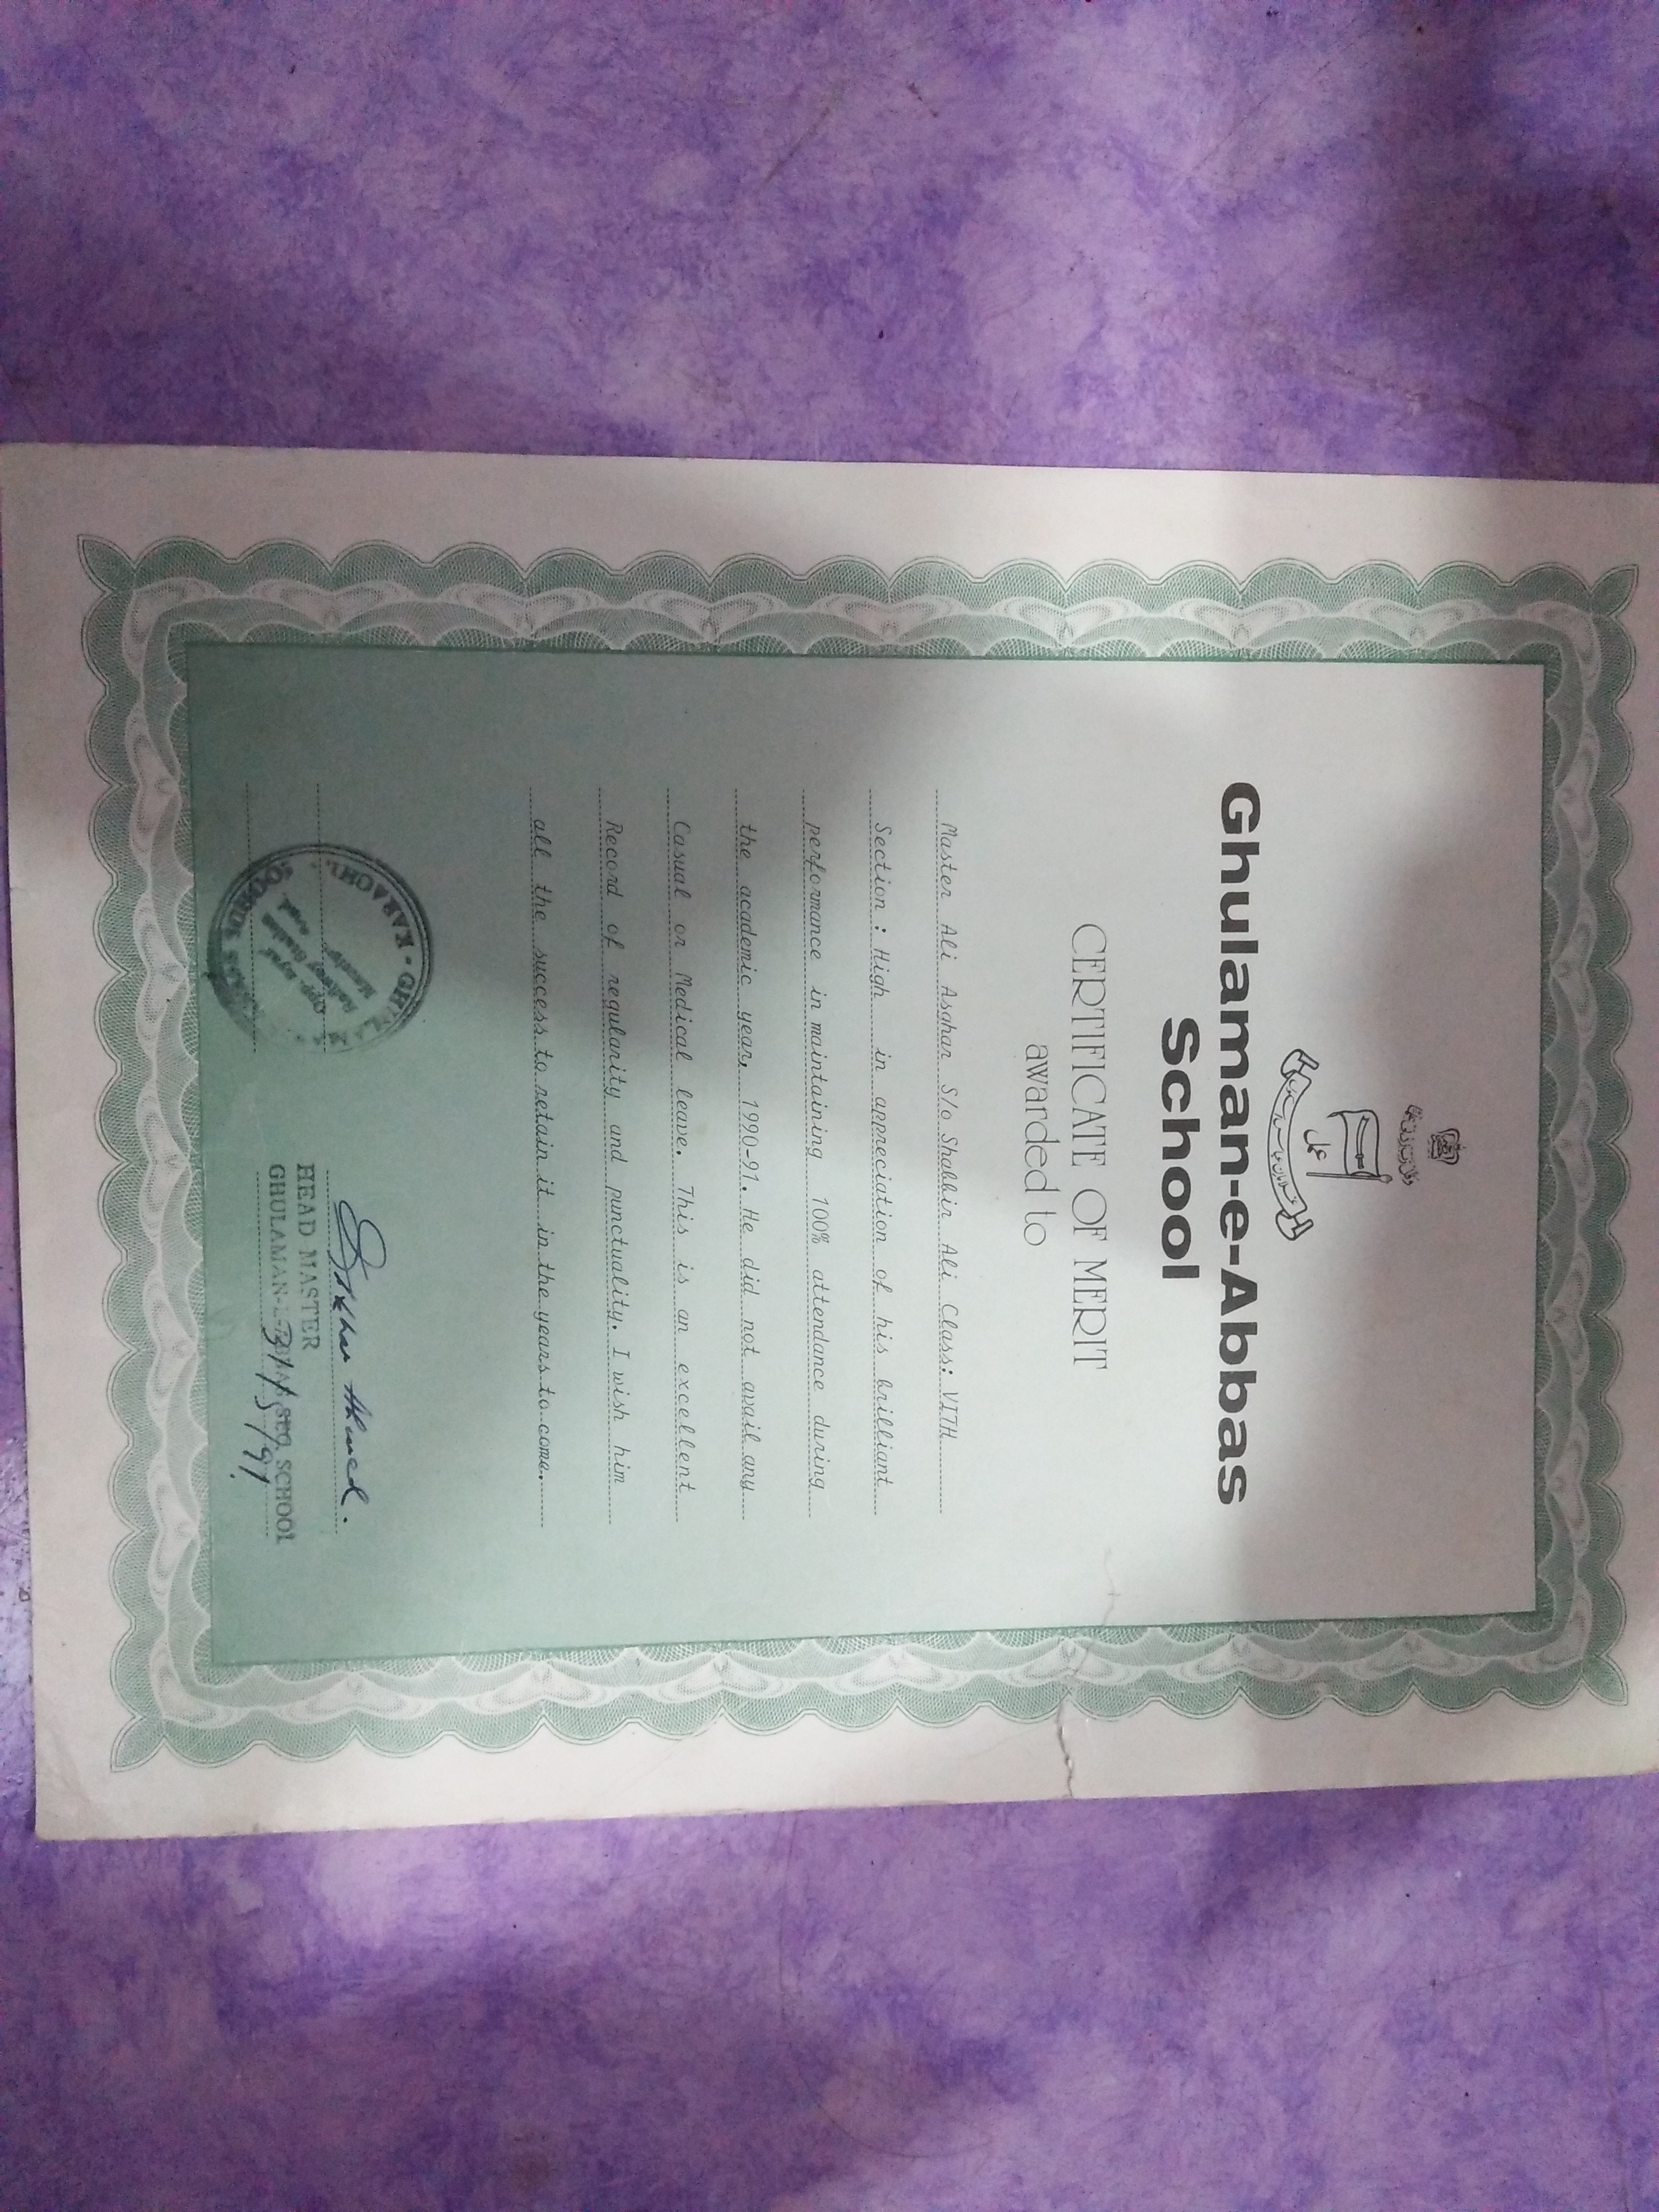 وقل رب زدنی علما
عمل
غلامان عباس اسکول
Ghulaman-e-Abbas
School
CERTIFICATE OF MERIT
awarded to
Master Ali Asghar S/o Shabbir Ali Class: VITH
Section : High in appreciation of his brilliant
performance in maintaining 100% attendance during
the academic year, 1990-91. He did not avail any
Casual or Medical leave. This is an excellent
Record of regularity and punctuality. I wish him
all the success to retain it in the years to come.
KARACHI.
SCHOOL
Opp.
Railway Station
Road
Ahmed.
HEAD MASTER
GHULAMAN-E-ABBAS SEC. SCHOOL
31/5/91.